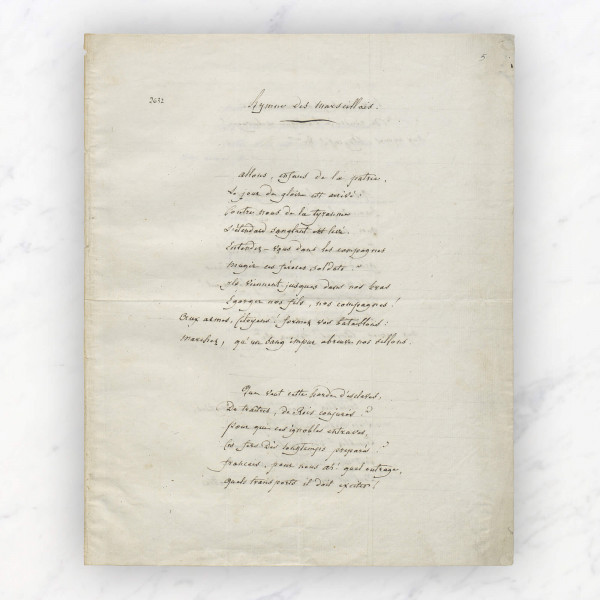 5
2632
Hymne des Marseillais.
allons, enfans de la patrie,
Le jour de gloire est arrivé !
Contre nous de la tyrannie
L'étendard sanglant est levé.
Entendez-vous dans les campagnes
mugir ces féroces soldats ?
ils viennent jusques dans nos bras
Egorger nos fils, nos compagnes !
Aux armes, Citoyens ! formez vos bataillons :
marchez, qu'un sang impur abreuve nos sillons.
Que veut cette horde d'esclaves,
De traîtres, de Rois conjurés ?
pour qui ces ignobles entraves,
Ces fers Dès longtemps préparés
français, pour nous ah ! quel outrage,
quels transports il doit exciter !